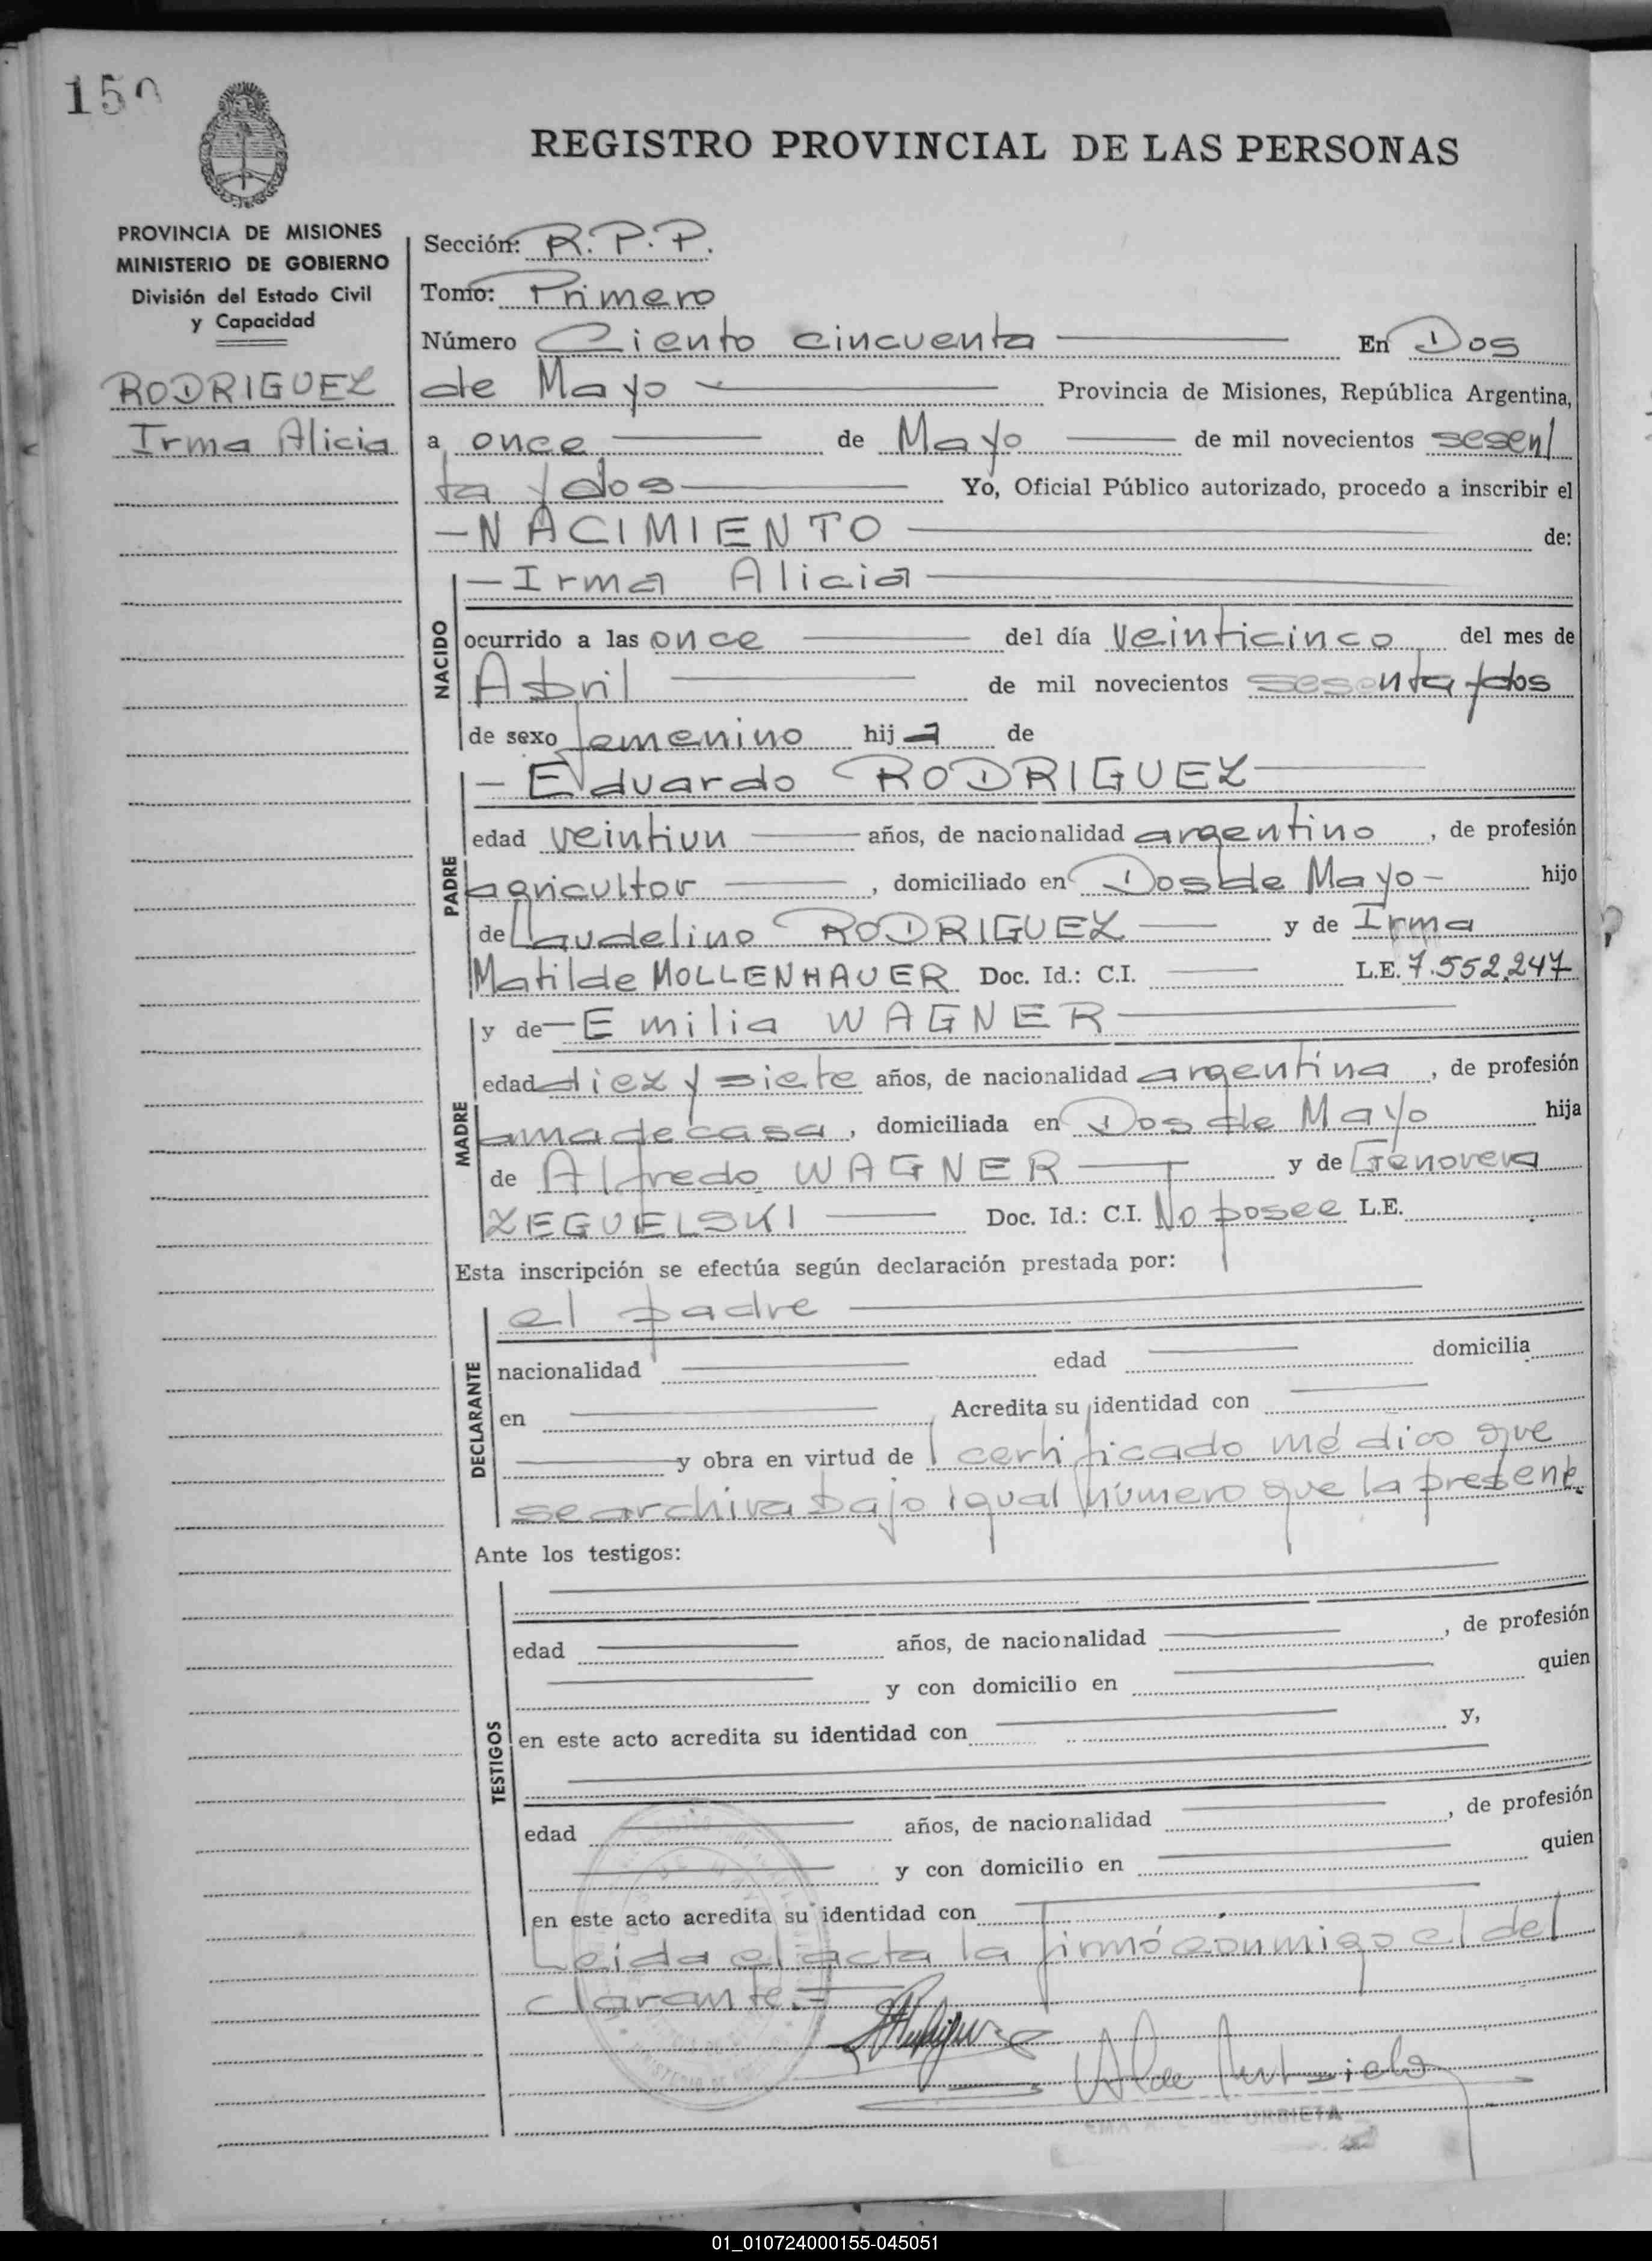 150
REGISTRO PROVINCIAL DE LAS PERSONAS
PROVINCIA DE MISIONES
MINISTERIO DE GOBIERNO
División del Estado Civil
y Capacidad
RODRIGUEZ
Irma Alicia
Sección: R. P. P.
Tomo: Primero
Número Ciento cincuenta En Dos
de Mayo Provincia de Misiones, República Argentina,
a once de Mayo de mil novecientos sesen/
ta y dos Yo, Oficial Público autorizado, procedo a inscribir el
-NACIMIENTO de:
NACIDO
-Irma Alicia
ocurrido a las once del día veinticinco del mes de
Abril de mil novecientos sesenta y dos
de sexo femenino hija de
PADRE
- Eduardo RODRIGUEZ
edad veintiun años, de nacionalidad argentino, de profesión
agricultor, domiciliado en Dos de Mayo- hijo
de Laudelino RODRIGUEZ y de Irma
Matilde MOLLENHAUER Doc. Id.: C.I. L.E. 7.552.247
MADRE
y de -Emilia WAGNER
edad diez y siete años, de nacionalidad argentina, de profesión
ama de casa, domiciliada en Dos de Mayo hija
de Alfredo WAGNER y de Genoveva
ZEGUELSKI Doc. Id.: C.I. No posee L.E.
Esta inscripción se efectúa según declaración prestada por:
DECLARANTE
el padre
nacionalidad edad domicilia
en Acredita su identidad con
y obra en virtud de certificado médico que
se archiva bajo igual número que la presente.
Ante los testigos:
TESTIGOS
edad años, de nacionalidad , de profesión
y con domicilio en quien
en este acto acredita su identidad con y,
edad años, de nacionalidad , de profesión
y con domicilio en quien
en este acto acredita su identidad con
Leida el acta la firmó conmigo el de/
clarante.=
URBIETA
01_010724000155-045051